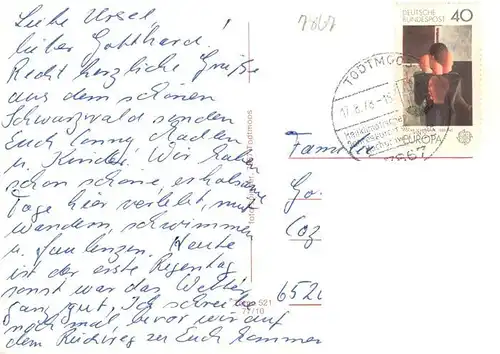 Liebe Ursel,
lieber Gotthard!
Recht herzliche Grüße
aus dem schönen
Schwarzwald senden
Euch Conny, 
u. Kinder. Wir haben
schon schöne, erholsame
Tage hier verlebt, mit
wandern, schwimmen
u. faulenzen. Heute
ist der erste Regentag
sonst war das Wetter
ganz gut. Ich schreibe
noch mal, bevor wir auf
dem Rückweg zu Euch kommen
7867
DEUTSCHE
BUNDESPOST
40
TODTMOOS
EUROPA
7867
Familie
Go
Coz
652
Todtmoos
521
77/10